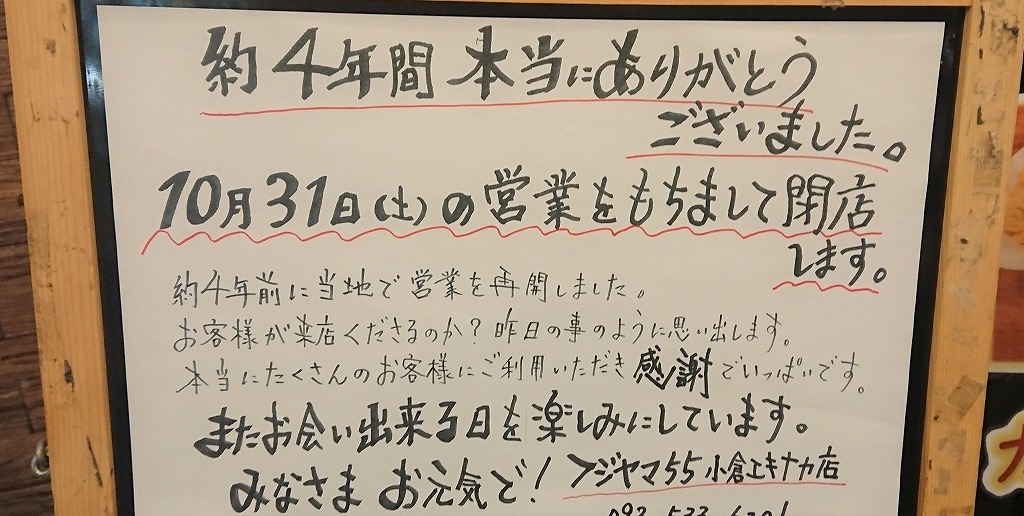 約4年間 本当にありがとう
ございました。
10月31日(土)の営業をもちまして閉店
します。
約4年前に当地で営業を再開しました。
お客様が来店くださるのか?昨日の事のように思い出します。
本当にたくさんのお客様にご利用いただき感謝でいっぱいです。
またお会い出来る日を楽しみにしています。
みなさま お元気で! フジヤマ55 小倉エキナカ店